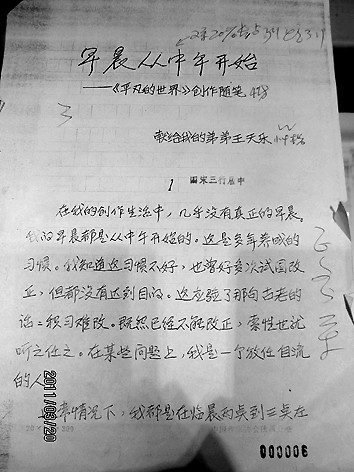 早晨从中午开始
——《平凡的世界》创作随笔
献给我的弟弟王天乐
1
在我的创作生活中，几乎没有真正的早晨。
我的早晨都是从中午开始的。这是多年养成的
习惯。我知道这习惯不好，也曾好多次试图改
正，但都没有达到目的。这应验了那句古老的
话：积习难改。既然已经不能改正，索性也就
听之任之。在某些问题上，我是一个放任自流
的人
情况下，我都是在临晨两点到三点左
2011/03/20
000006